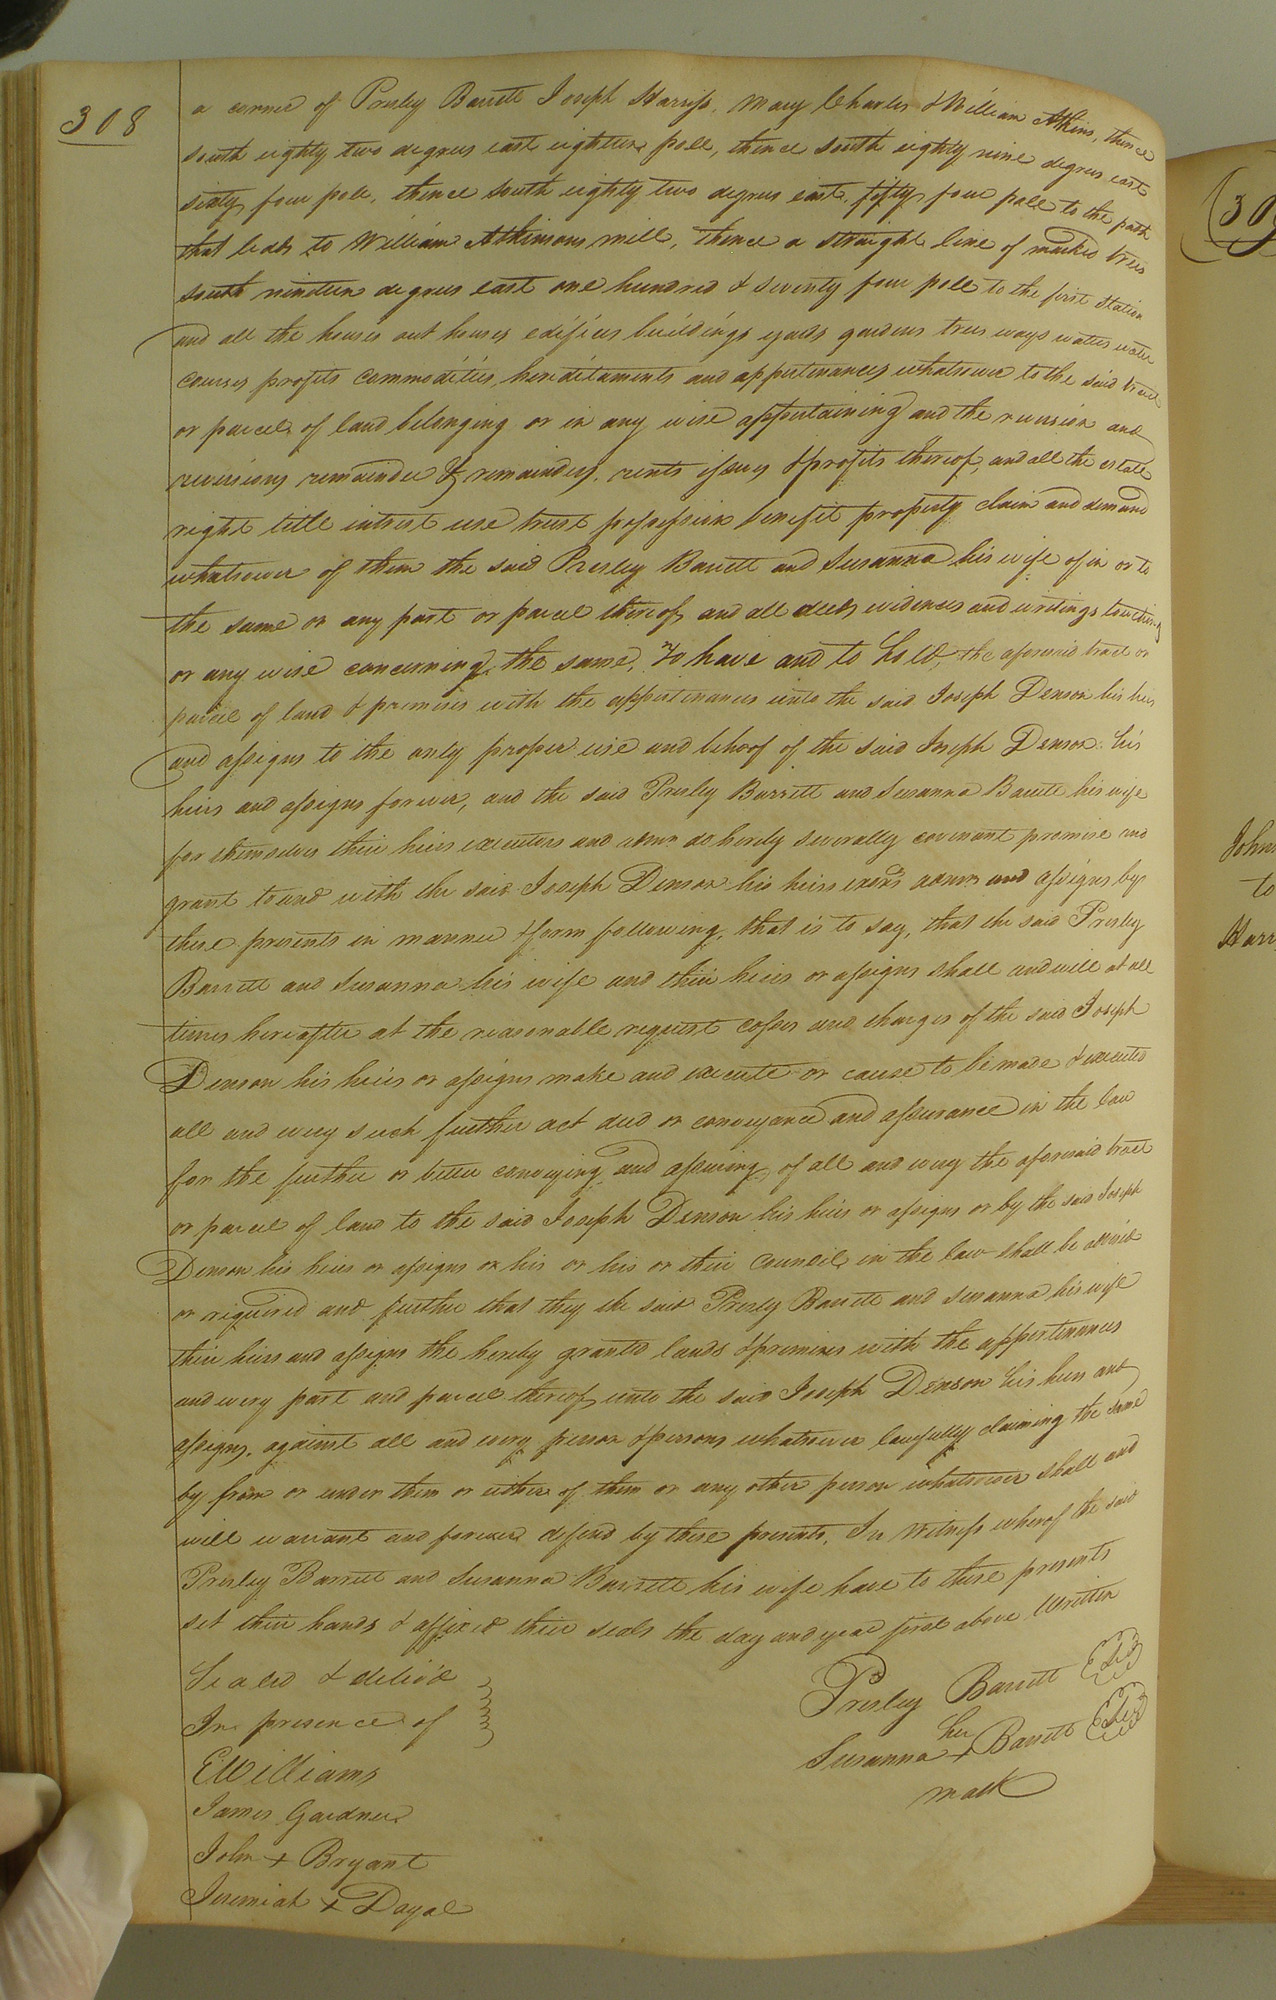 308
a corner of Presley Barrett Joseph Harriss, Mary Charles & William Atkins, thence
south eighty two degrees east eighteen pole, thence south eighty nine degrees east
sixty four pole, thence south eighty two degrees east, fifty four pole to the path
that leads to William Atkinsons mill, thence a straight line of marked trees
south nineteen degrees east one hundred & seventy four pole to the first station
and all the houses out houses edifices buildings yards gardens trees ways waters water
courses profits commodities, hereditaments and appertinances whatsoever to the said tract
or parcel of land belonging or in any wise appertaining and the reversion and
reversions remainder & remainders, rents issues & profits thereof, and all the estate
right title intrest use trust possession benefit property claim and demand
whatsoever of them the said Presley Barrett and Susanna his wife of in or to
the same or any part or parcel thereof, and all deeds evidences and writings touching
or any wise concerning the same, To have and to hold, the aforesaid tract or
parcel of land & premises with the appertinances unto the said Joseph Denson his heirs
and assigns to the only proper use and behoof of the said Joseph Denson his
heirs and assigns forever, and the said Presley Barrett and Susanna Barrett his wife
for themselves their heirs executors and admrs do hereby severally covenant promise and
grant to and with the said Joseph Denson his heirs exors admrs and assigns by
these presents in manner & form following, that is to say, that the said Presley
Barrett and Susanna his wife and their heirs or assigns shall and will at all
times hereafter at the reasonable request costs and charges of the said Joseph
Denson his heirs or assigns make and execute or cause to be made & executed
all and every such further act deed or conveyance and assurance in the law
for the further or better conveying and assuring of all and every the aforesaid tract
or parcel of land to the said Joseph Denson his heirs or assigns or by the said Joseph
Denson his heirs or assigns or his or his or their Council in the law shall be advised
or required and further that they the said Presley Barrett and Susanna his wife
their heirs and assigns the hereby granted lands & premises with the appertinances
and every part and parcel thereof unto the said Joseph Denson his heirs and
assigns, against all and every person & persons whatsoever lawfully claiming the same
by from or under them or either of them or any other person whatsoever shall and
will warrant and forever defend by these presents, In Witness whereof the said
Presley Barrett and Susanna Barrett his wife have to these presents
set their hands & affixed their seals the day and year first above Written
Sealed & delivd
In presence of
Presley Barrett
her
Susanna + Barrett
mark
E Williams
James Gardner
John + Bryant
Jeremiah +
John
to
Harr